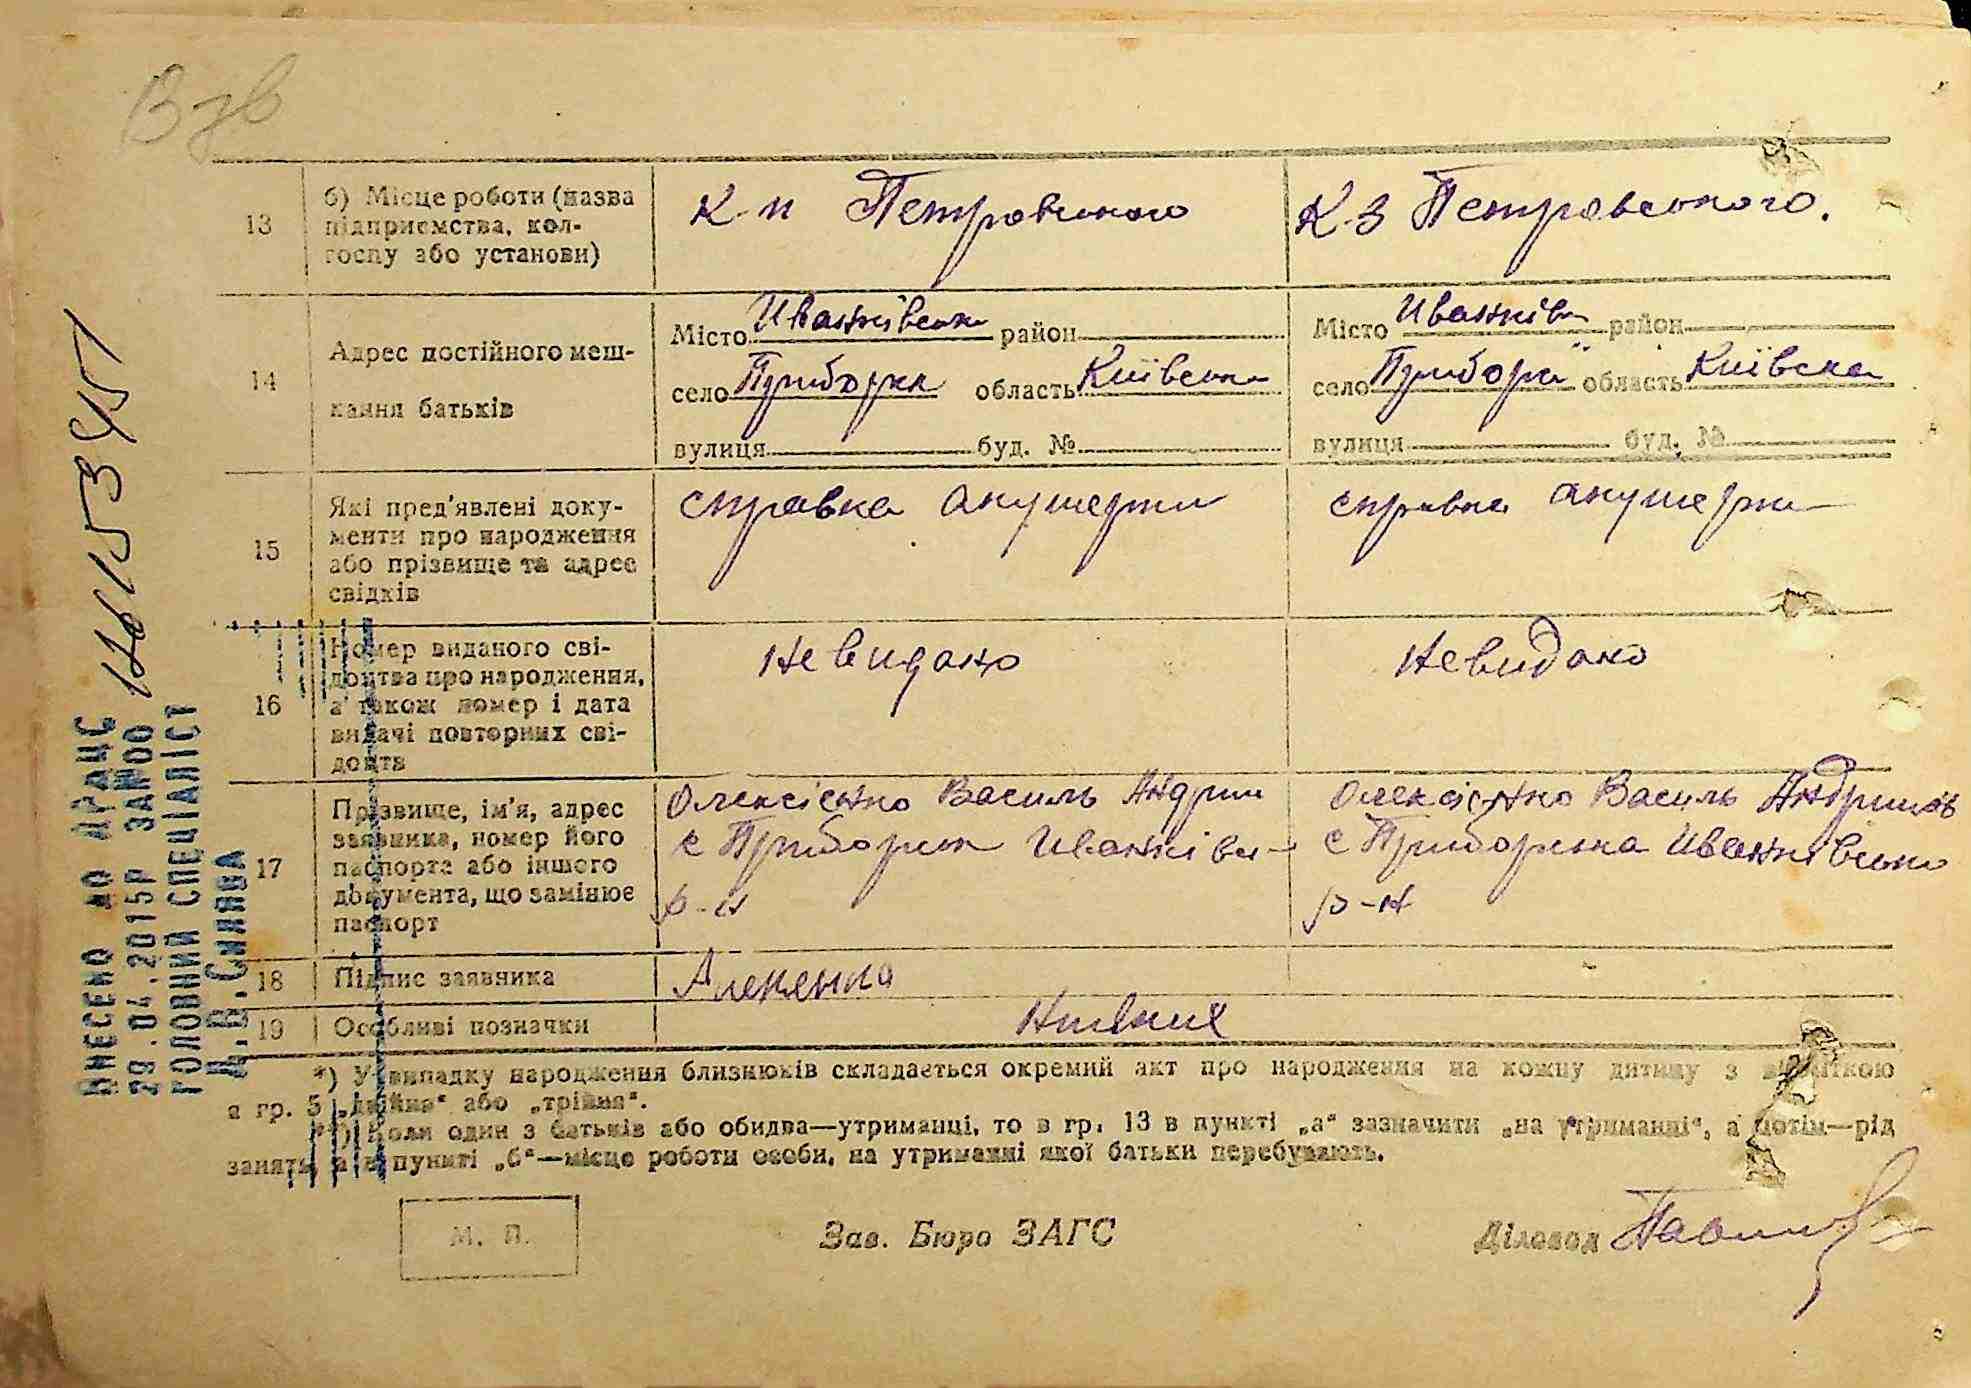 13 б) Місце роботи (назва
підприємства, кол-
госпу або установи)
К-п Петровського
К-з Петровського.
14 Адрес постійного меш-
кання батьків
Місто Иванківськ район
село Приборки область Київська
вулиця буд. №
Місто Иванків район
село Приборк область Київска
вулиця буд. №
15 Які пред'явлені доку-
менти про народження
або прізвище та адрес
свідків
справка акушерки
справка акушерки
16 Номер виданого сві-
доцтва про народження,
а також номер і дата
видачі повторних сві-
доцтв
Невидано
Невидано
17 Прізвище, ім'я, адрес
заявника, номер його
паспорта або іншого
документа, що замінює
паспорт
Олексієнко Василь Андрии
с Приборск Иванківск
р-н
Олексієнко Василь Андриїв
с Приборска Иванківсько
р-н
18 Підпис заявника
19 Особливі позначки
*) У випадку народження близнюків складається окремий акт про народження на кожну дитину з відміткою
в гр. 5 „двійня“ або „трійня“.
**) Коли один з батьків або обидва—утриманці, то в гр. 13 в пункті „а“ зазначити „на утриманні“, а потім—рід
занять, а в пункті „б“—місце роботи особи, на утриманні якої батьки перебувають.
М. П.
Зав. Бюро ЗАГС
Діловод
ВНЕСЕНО ДО ДРАЦС
29.04.2015Р ЗА№00 116153451
ГОЛОВНИЙ СПЕЦІАЛІСТ